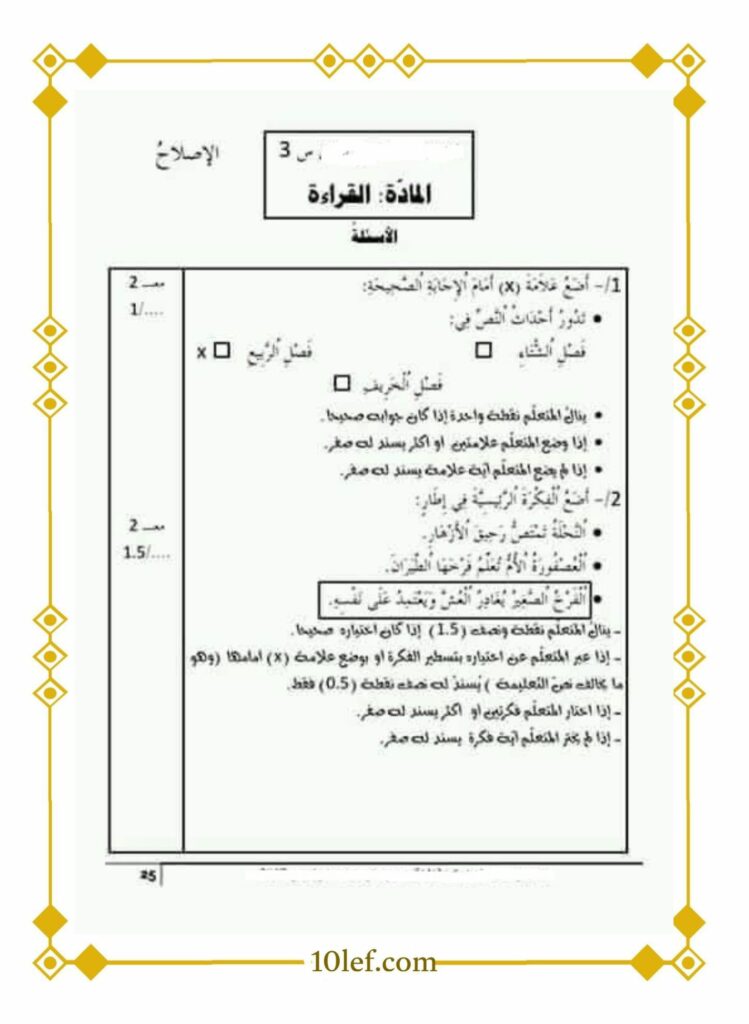 الإصلاحُ
س 3
المادّة: القراءة
الأسئلةُ
معـ 2
..../1
1/- أَضَعُ عَلَامَةَ (x) أَمَامَ ٱلْإِجَابَةِ ٱلصَّحِيحَةِ:
• تَدُورُ أَحْدَاثُ ٱلنَّصِّ فِي:
فَصْلِ ٱلشِّتَاءِ □ فَصْلِ ٱلرَّبِيعِ □ x
فَصْلِ ٱلْخَرِيفِ □
• ينالُ المتعلّم نقطة واحدة إذا كان جوابه صحيحا.
• إذا وضع المتعلّم علامتين او اكثر يسند له صفر.
• إذا لم يضع المتعلّم أيّة علامة يسند له صفر.
معـ 2
..../1.5
2/- أَضَعُ ٱلْفِكْرَةَ ٱلرَّئِيسِيَّةَ فِي إِطَارٍ:
• ٱلنَّحْلَةُ تَمْتَصُّ رَحِيقَ ٱلْأَزْهَارِ.
• ٱلْعُصْفُورَةُ ٱلْأُمُّ تُعَلِّمُ فَرْخَهَا ٱلطَّيَرَانَ.
• ٱلْفَرْخُ ٱلصَّغِيرُ يُغَادِرُ ٱلْعُشَّ وَيَعْتَمِدُ عَلَى نَفْسِهِ.
- ينالُ المتعلّم نقطة ونصف (1.5) إذا كان اختياره صحيحا.
- إذا عبر المتعلّم عن اختياره بتسطير الفكرة او بوضع علامة (x) امامها (وهو
ما يخالف نصّ التعليمة) يُسندُ له نصف نقطة (0.5) فقط.
- إذا اختار المتعلّم فكرتين او اكثر يسند له صفر.
- إذا لم يختر المتعلّم أيّة فكرة يسند له صفر.
25
10lef.com